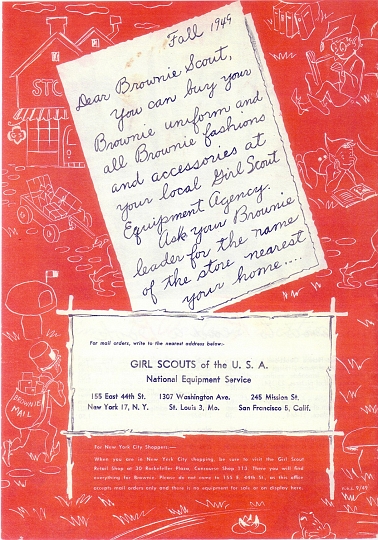 Fall 1949
Dear Brownie Scout,
You can buy your
Brownie uniform and
all Brownie fashions
and accessories at
your local Girl Scout
Equipment Agency.
Ask your Brownie
leader for the name
of the store nearest
your home....
STO
For mail orders, write to the nearest address below:-
GIRL SCOUTS of the U. S. A.
National Equipment Service
155 East 44th St. 1307 Washington Ave. 245 Mission St.
New York 17, N. Y. St. Louis 3, Mo. San Francisco 5, Calif.
BROWNIE
MAIL
For New York City Shoppers:—
When you are in New York City shopping, be sure to visit the Girl Scout
Retail Shop at 30 Rockefeller Plaza, Concourse Shop 113. There you will find
everything for Brownies. Please do not come to 155 E. 44th St., as this office
accepts mail orders only and there is no equipment for sale or on display here.